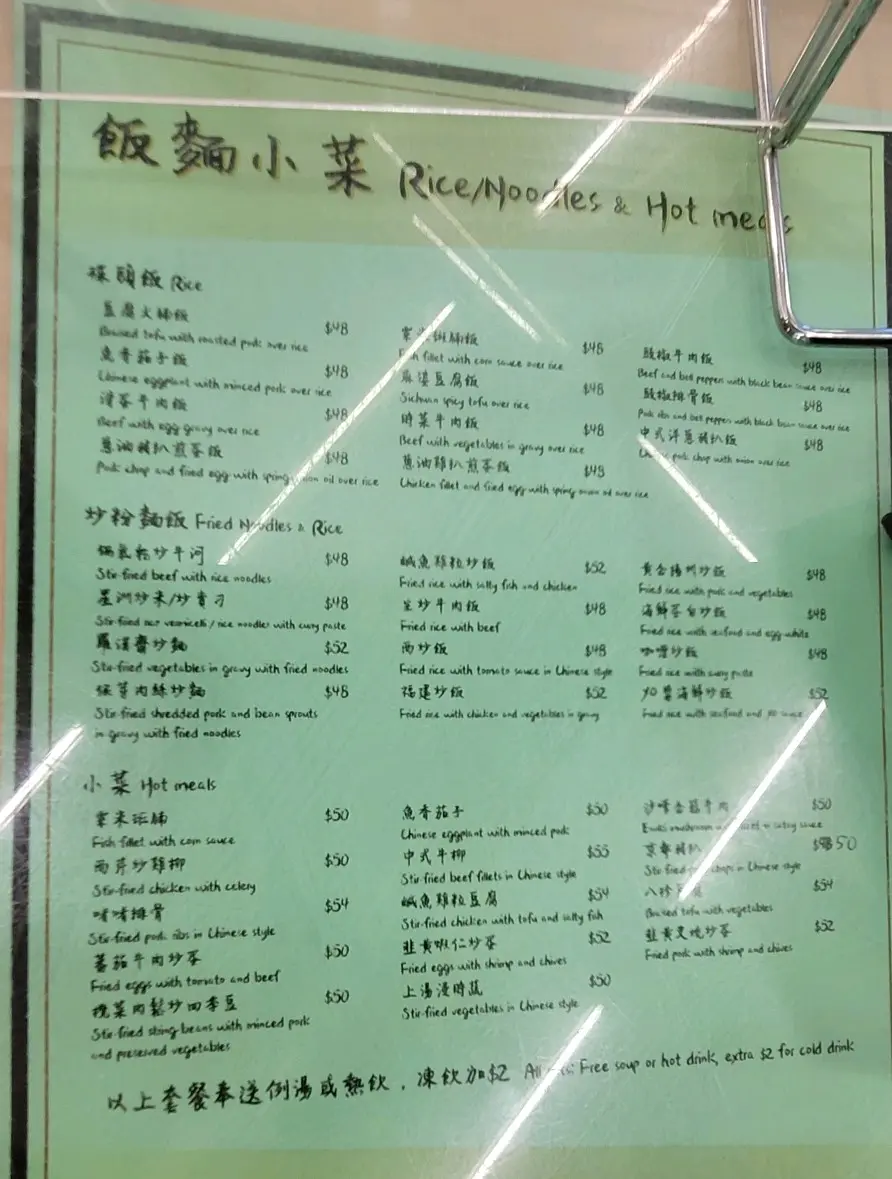 飯麵小菜 Rice/Noodles & Hot meals
碟頭飯 Rice
豆腐火腩飯 $48
Braised tofu with roasted pork over rice
魚香茄子飯 $48
Chinese eggplant with minced pork over rice
滑蛋牛肉飯 $48
Beef with egg gravy over rice
蔥油豬扒煎蛋飯 $48
Pork chop and fried egg with spring onion oil over rice
粟米斑腩飯 $48
Fish fillet with corn sauce over rice
麻婆豆腐飯 $48
Sichuan spicy tofu over rice
時菜牛肉飯 $48
Beef with vegetables in gravy over rice
蔥油雞扒煎蛋飯 $48
Chicken fillet and fried egg with spring onion oil over rice
豉椒牛肉飯 $48
Beef and bell peppers with black bean sauce over rice
豉椒排骨飯 $48
Pork ribs and bell peppers with black bean sauce over rice
中式洋蔥豬扒飯 $48
Chinese pork chop with onion over rice
炒粉麵飯 Fried Noodles & Rice
鑊氣乾炒牛河 $48
Stir-fried beef with rice noodles
星洲炒米/炒貴刁 $48
Stir-fried rice vermicelli / rice noodles with curry paste
羅漢齋炒麵 $52
Stir-fried vegetables in gravy with fried noodles
銀芽肉絲炒麵 $48
Stir-fried shredded pork and bean sprouts
in gravy with fried noodles
鹹魚雞粒炒飯 $52
Fried rice with salty fish and chicken
生炒牛肉飯 $48
Fried rice with beef
西炒飯 $48
Fried rice with tomato sauce in Chinese style
福建炒飯 $52
Fried rice with chicken and vegetables in gravy
黃金揚州炒飯 $48
Fried rice with pork and vegetables
海鮮蛋白炒飯 $48
Fried rice with seafood and egg-white
咖喱炒飯 $48
Fried rice with curry paste
XO醬海鮮炒飯 $52
Fried rice with seafood and XO sauce
小菜 Hot meals
粟米斑腩 $50
Fish fillet with corn sauce
西芹炒雞柳 $50
Stir-fried chicken with celery
啫啫排骨 $54
Stir-fried pork ribs in Chinese style
蕃茄牛肉炒蛋 $50
Fried eggs with tomato and beef
欖菜肉鬆炒四季豆 $50
Stir-fried string beans with minced pork
and preserved vegetables
魚香茄子 $50
Chinese eggplant with minced pork
中式牛柳 $55
Stir-fried beef fillets in Chinese style
鹹魚雞粒豆腐 $54
Stir-fried chicken with tofu and salty fish
韭黃蝦仁炒蛋 $52
Fried eggs with shrimp and chives
上湯浸時蔬 $50
Stir-fried vegetables in Chinese style
沙嗲金菇牛肉 $50
Enoki mushroom in satay sauce
京都豬扒 50
Stir-fried pork chops in Chinese style
八珍豆腐 $54
Braised tofu with vegetables
韭黃叉燒炒蛋 $52
Fried pork with shrimp and chives
以上套餐奉送例湯或熱飲，凍飲加$2 All Free soup or hot drink, extra $2 for cold drink